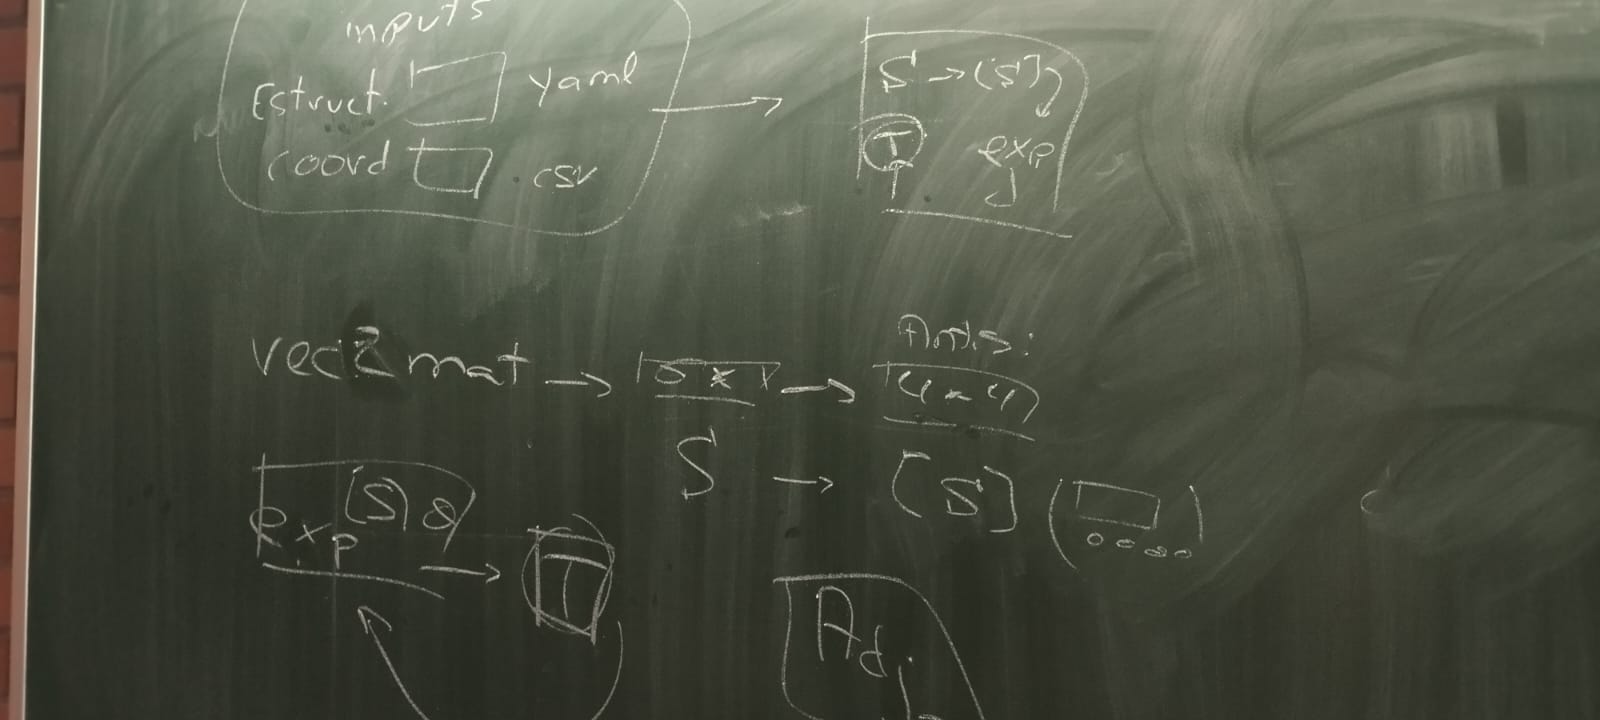 inputs
Estruct. yaml
coord . csv
S → [S]
T exp
J
vec2mat → → 4x4
S → [S]
exp [S] θ → T
Adj